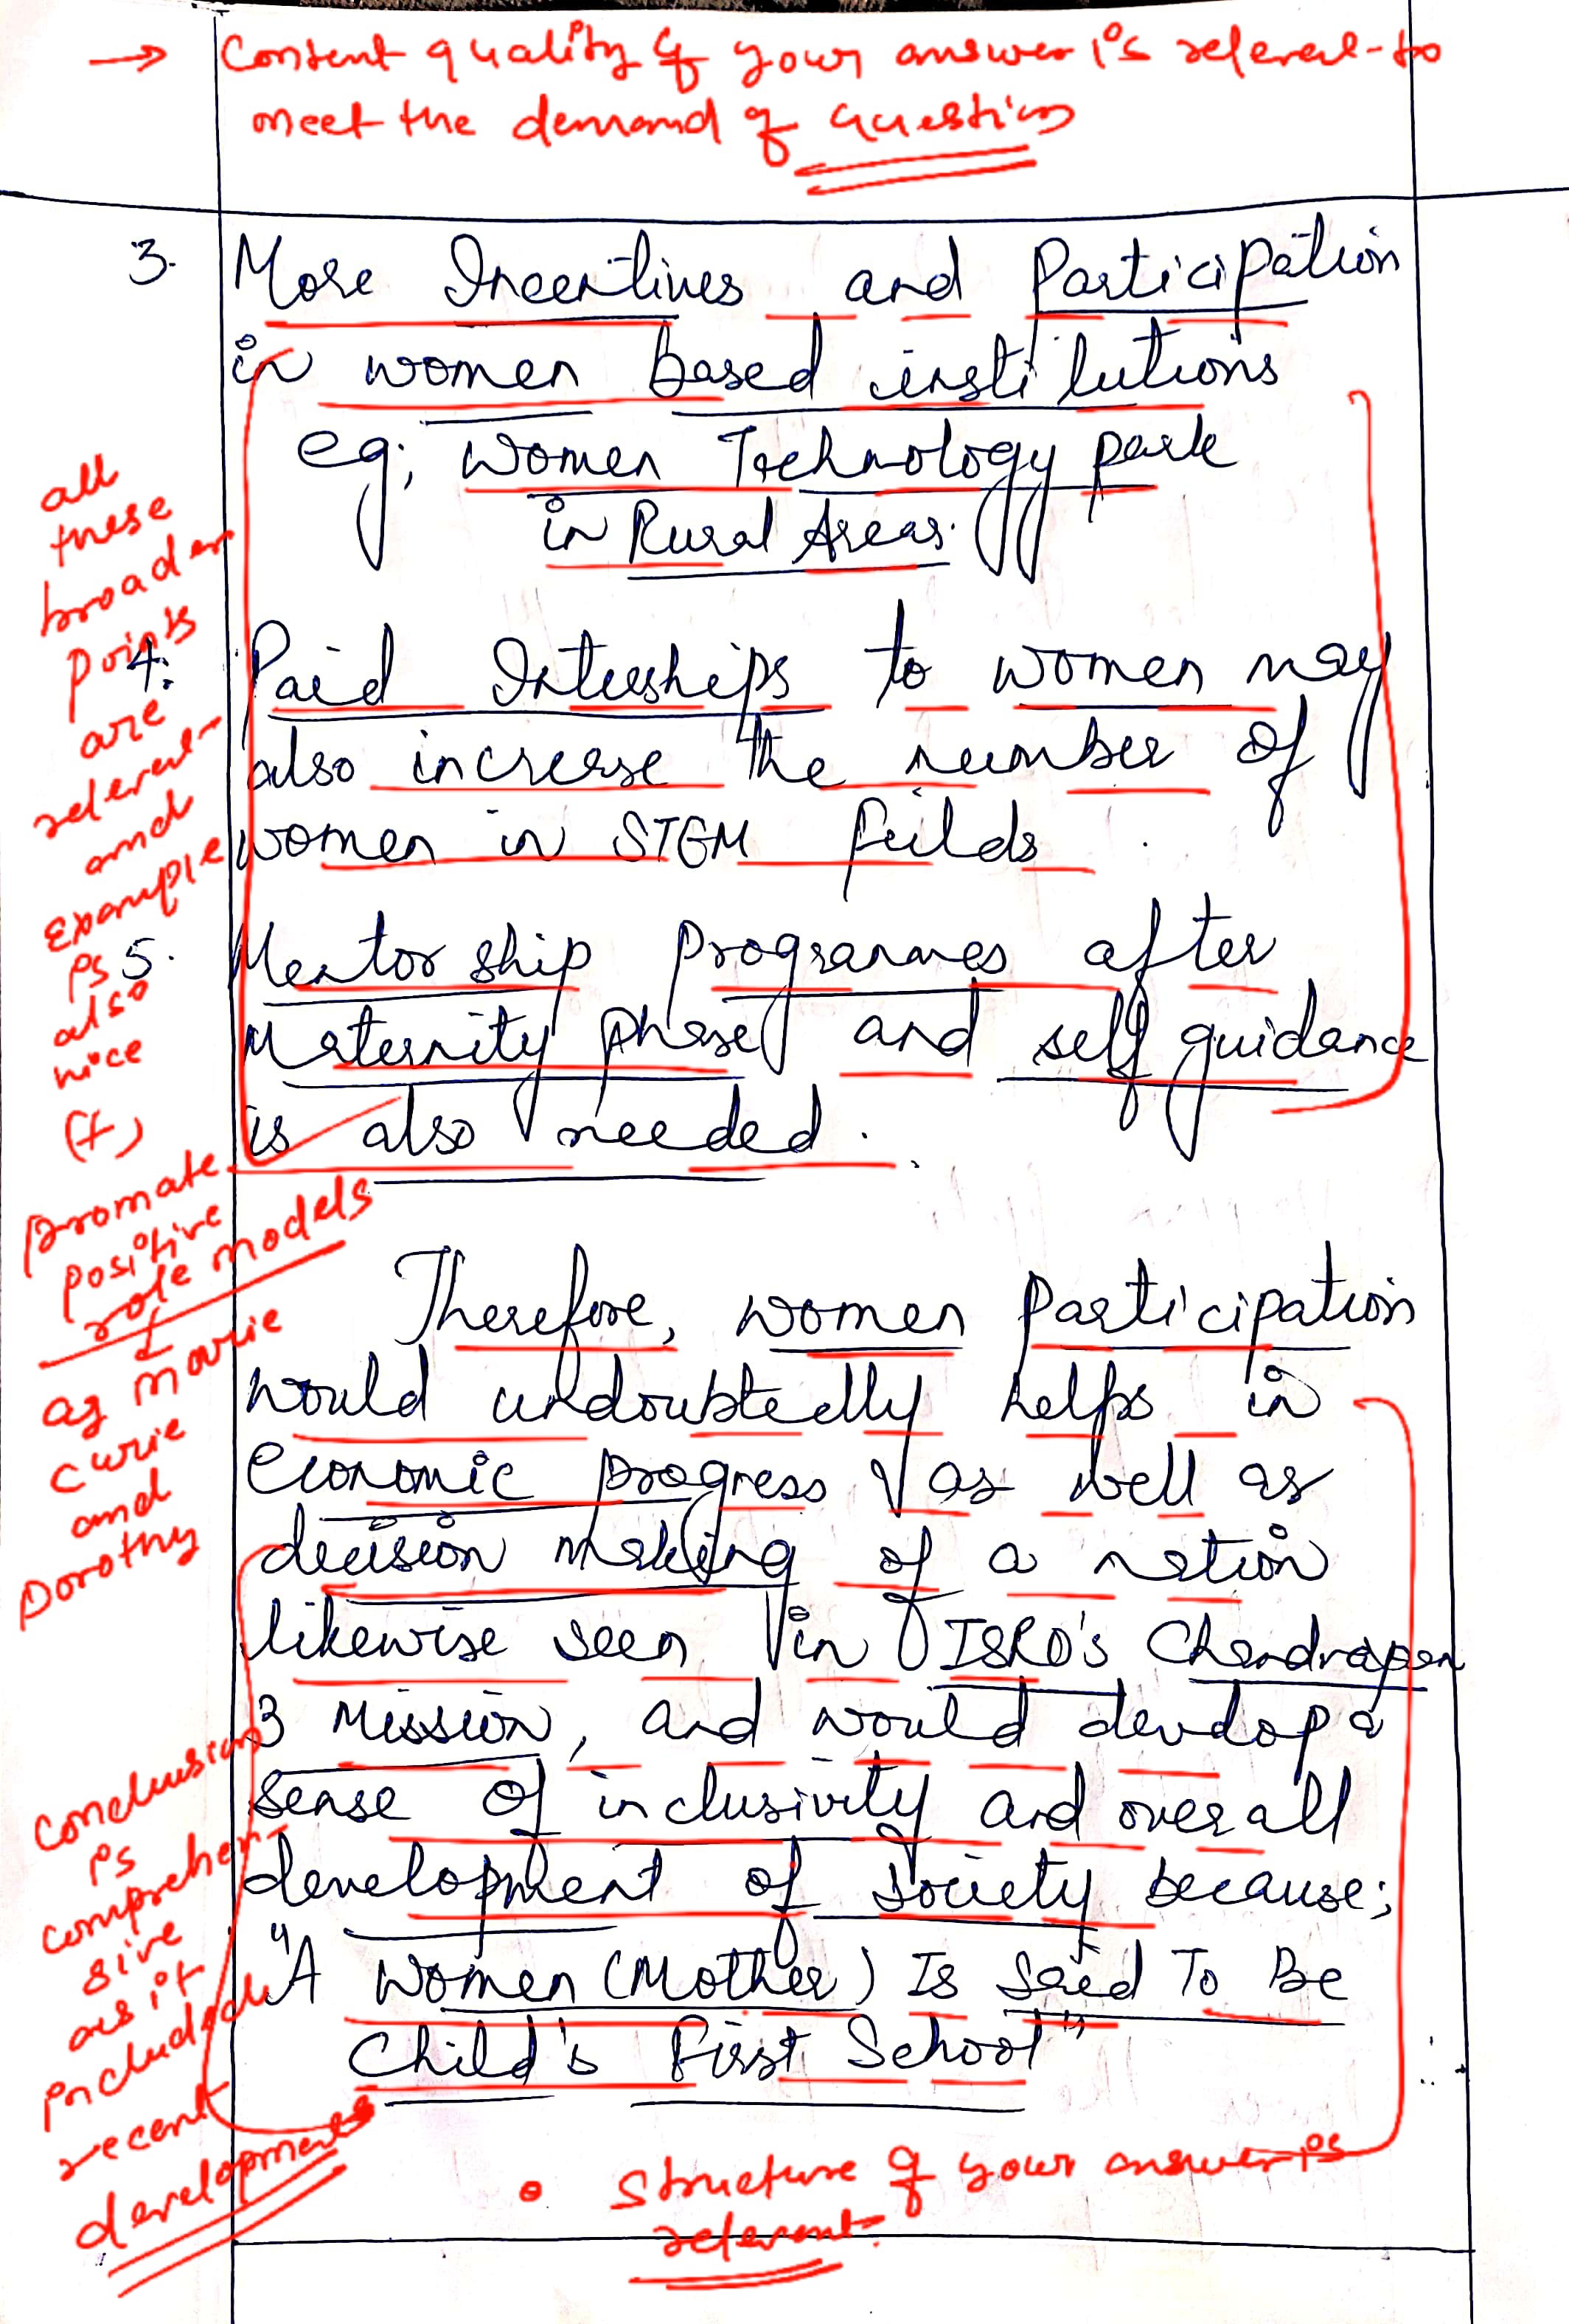 → Content quality of your answer is relevant to
meet the demand of question
3. More Incentives and Participation
in women based institutions
eg; Women Technology park
in Rural Areas.
4. Paid Internships to women may
also increase the number of
women in STEM feilds.
5. Mentorship programmes after
Maternity phase and self guidance
is also needed.
all
these
broader
points
are
relevant
and
example
is
also
nice
(+)
promate
positive
role models
as marie
curie
and
Dorothy
Therefore, women participation
would undoubtedly helps in
economic progress as well as
decision making of a nation
likewise seen in ISRO's Chandrayan
3 Mission, and would develop a
sense of inclusivity and overall
development of society because;
"A Women (Mother) Is Said To Be
Child's First School"
conclusion
is
comprehen-
sive
as it
included
recent
developments
• Structure of your answer is
relevant.